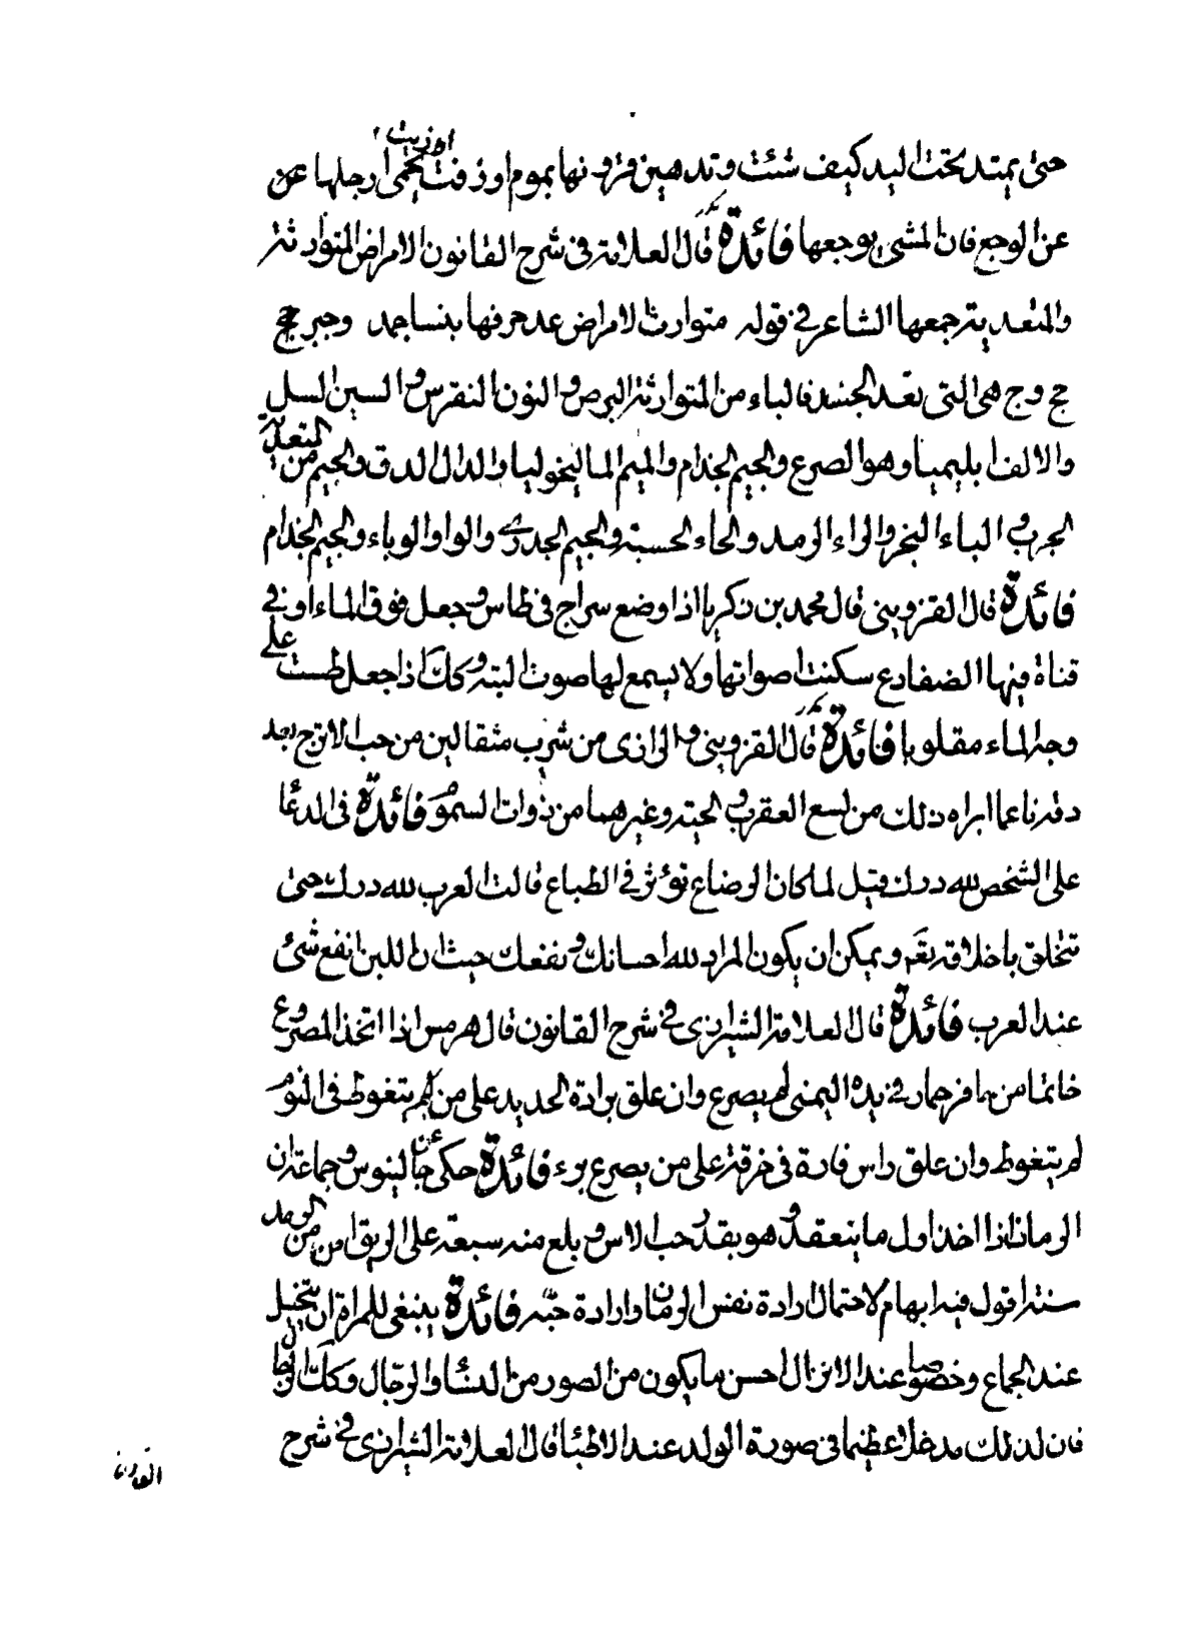 حتى يمتد تحت اليد كيف شئت وتدهين قرونها بموم او زفت او زيت يحمى ارجلها عن
عن الوجع فان المشى يوجعها فائدة قال العلامة فى شرح القانون الامراض المتوارثة
والمتعدية جمعها الشاعر فى قوله متوارث الامراض عد حرفها بنساجمد وجبر حج
حج وج هى التى تعد الجسد فالباء من المتوارثة البرص والنون النقرس والسين السل
والالف ابليميا وهو الصرع والجيم الجذام والميم الماليخوليا والدال الدق والجيم من المتعدية
الجرب والباء البخر والراء الرمد والحاء الحسبة والجيم الجدرى والواو الوباء والجيم الجذام
فائدة قال القزوينى قال محمد بن زكريا اذا وضع سراج فى طاس وجعل فوق الماء او فى
قناة فيها الضفادع سكنت اصواتها ولا يسمع لها صوت البتة وكك اذا جعل طست على
وجه الماء مقلوبا فائدة قال القزوينى والرازى من شرب مثقالين من حب الاترج بعد
دقه ناعما ابراه ذلك من لسع العقرب والحية وغيرهما من ذوات السموم فائدة فى الدعا
على الشخص لله درك قيل لما كان الرضاع تؤثر فى الطباع قالت العرب لله درك حتى
تتخلق باخلاق ويمكن ان يكون المراد لله احسانك ونفعك حيث ان اللبن انفع شئ
عند العرب فائدة قال العلامة الشيرازى فى شرح القانون قال هرمس اذا اتخذ المصروع
خاتما من حافر حمار فى يده اليمنى لم يصرع وان علق برادة الحديد على من يتغوط فى النوم
لم يتغوط وان علق راس فارة فى خرقة على من يصرع برء فائدة حكى عن جالينوس وجماعة ان
الرمان اذا اخذ اول ما ينعقد وهو بقدر حب الاس وبلع منه سبعة على الريق امن من الرمد
سنة اقول فيه ابهام لاحتمال ارادة نفس الرمان وارادة حبه فائدة ينبغى للمراة ان تتخيل
عند الجماع وخصوصا عند الانزال احسن ما يكون من الصور من النساء والرجال وكك الرجل
فان لذلك مدخلا عظيما فى صورة الولد عند الاطباء قال العلامة الشيرازى فى شرح
القانون